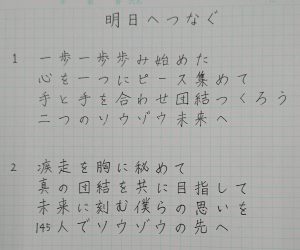 明日へつなぐ
1 一歩一歩歩み始めた
心を一つにピース集めて
手と手を合わせ団結つくろう
二つのソウゾウ未来へ
2 涙走を胸に秘めて
真の団結を共に目指して
未来に刻む僕らの思いを
145人でソウゾウの先へ